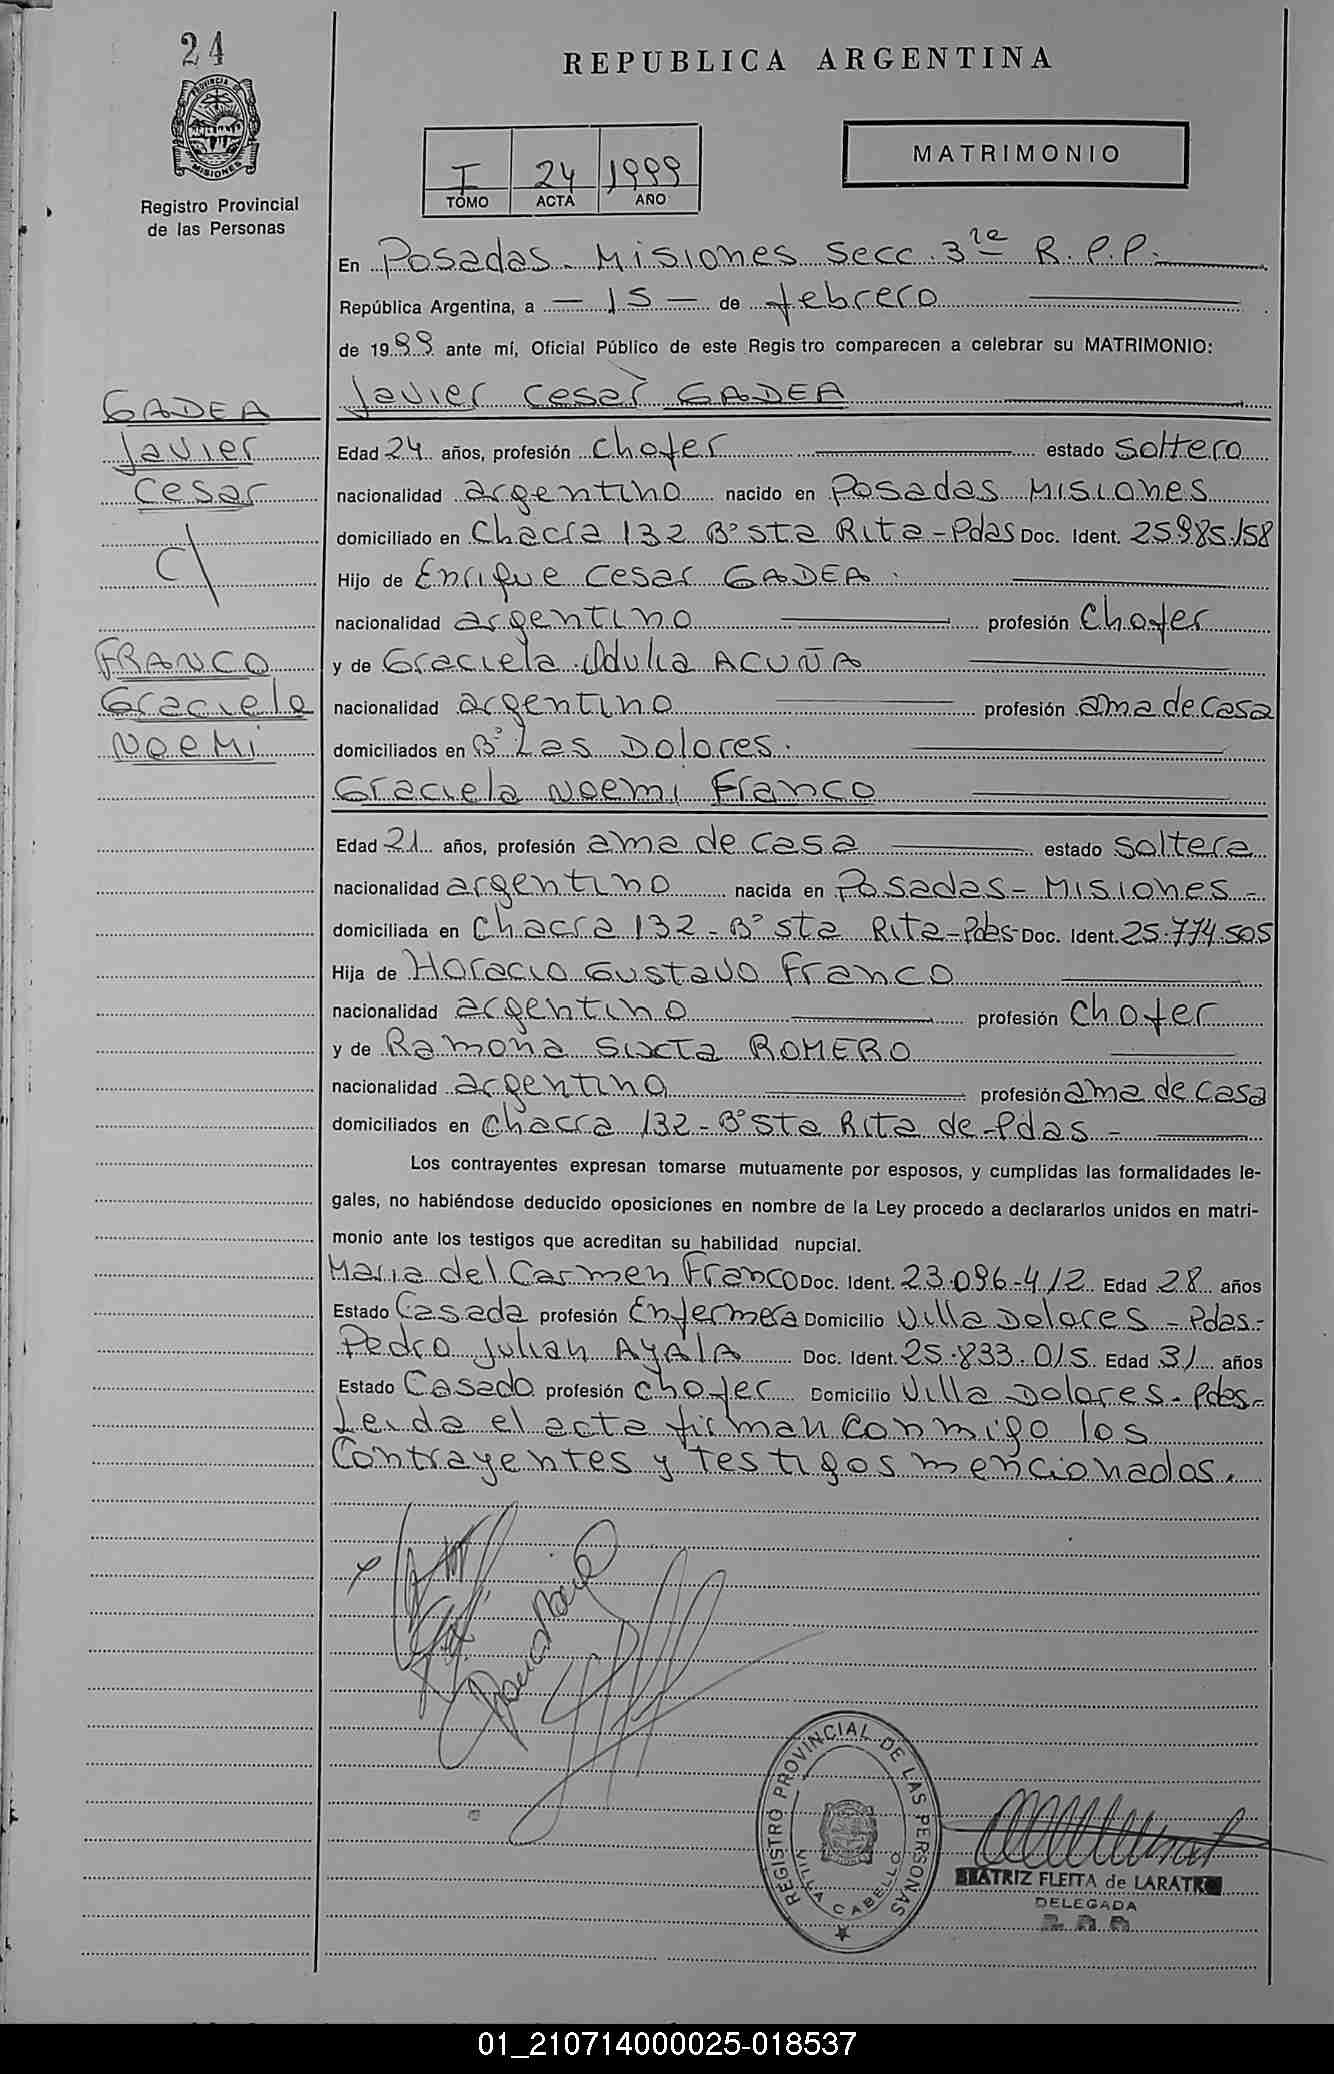 24
PROVINCIA DE
MISIONES
Registro Provincial
de las Personas
REPUBLICA ARGENTINA
I 24 1999
TOMO ACTA AÑO
MATRIMONIO
En Posadas - Misiones Secc. 3ra R.P.P.-
República Argentina, a - 15 - de febrero
de 1999 ante mí, Oficial Público de este Registro comparecen a celebrar su MATRIMONIO:
GADEA Javier Cesar GADEA
Javier Edad 24 años, profesión Chofer estado Soltero
Cesar nacionalidad argentino nacido en Posadas Misiones
domiciliado en Chacra 132 B° Sta Rita - Pdas Doc. Ident. 25.985.158
C/ Hijo de Enrique Cesar GADEA
nacionalidad argentino profesión Chofer
FRANCO y de Graciela ACUÑA
Graciela nacionalidad argentina profesión ama de casa
Noemi domiciliados en B° Las Dolores.
Graciela Noemi Franco
Edad 21 años, profesión ama de casa estado Soltera
nacionalidad argentina nacida en Posadas - Misiones -
domiciliada en Chacra 132 - B° Sta Rita - Pdas - Doc. Ident. 25.774.505
Hija de Horacio Gustavo Franco
nacionalidad argentino profesión Chofer
y de Ramona Sixta ROMERO
nacionalidad argentina profesión ama de casa
domiciliados en Chacra 132 - B° Sta Rita de - Pdas -
Los contrayentes expresan tomarse mutuamente por esposos, y cumplidas las formalidades le-
gales, no habiéndose deducido oposiciones en nombre de la Ley procedo a declararlos unidos en matri-
monio ante los testigos que acreditan su habilidad nupcial.
Maria del Carmen Franco Doc. Ident. 23.096.412 Edad 28 años
Estado Casada profesión Enfermera Domicilio Villa Dolores - Pdas -
Pedro Julian AYALA Doc. Ident. 25.833.015 Edad 31 años
Estado Casado profesión chofer Domicilio Villa Dolores - Pdas -
Leida el acta firman conmigo los
Contrayentes y testigos mencionados.
REGISTRO PROVINCIAL DE LAS PERSONAS
VILLA CABELLO
BEATRIZ FLEITA de LARATRO
DELEGADA
01_210714000025-018537